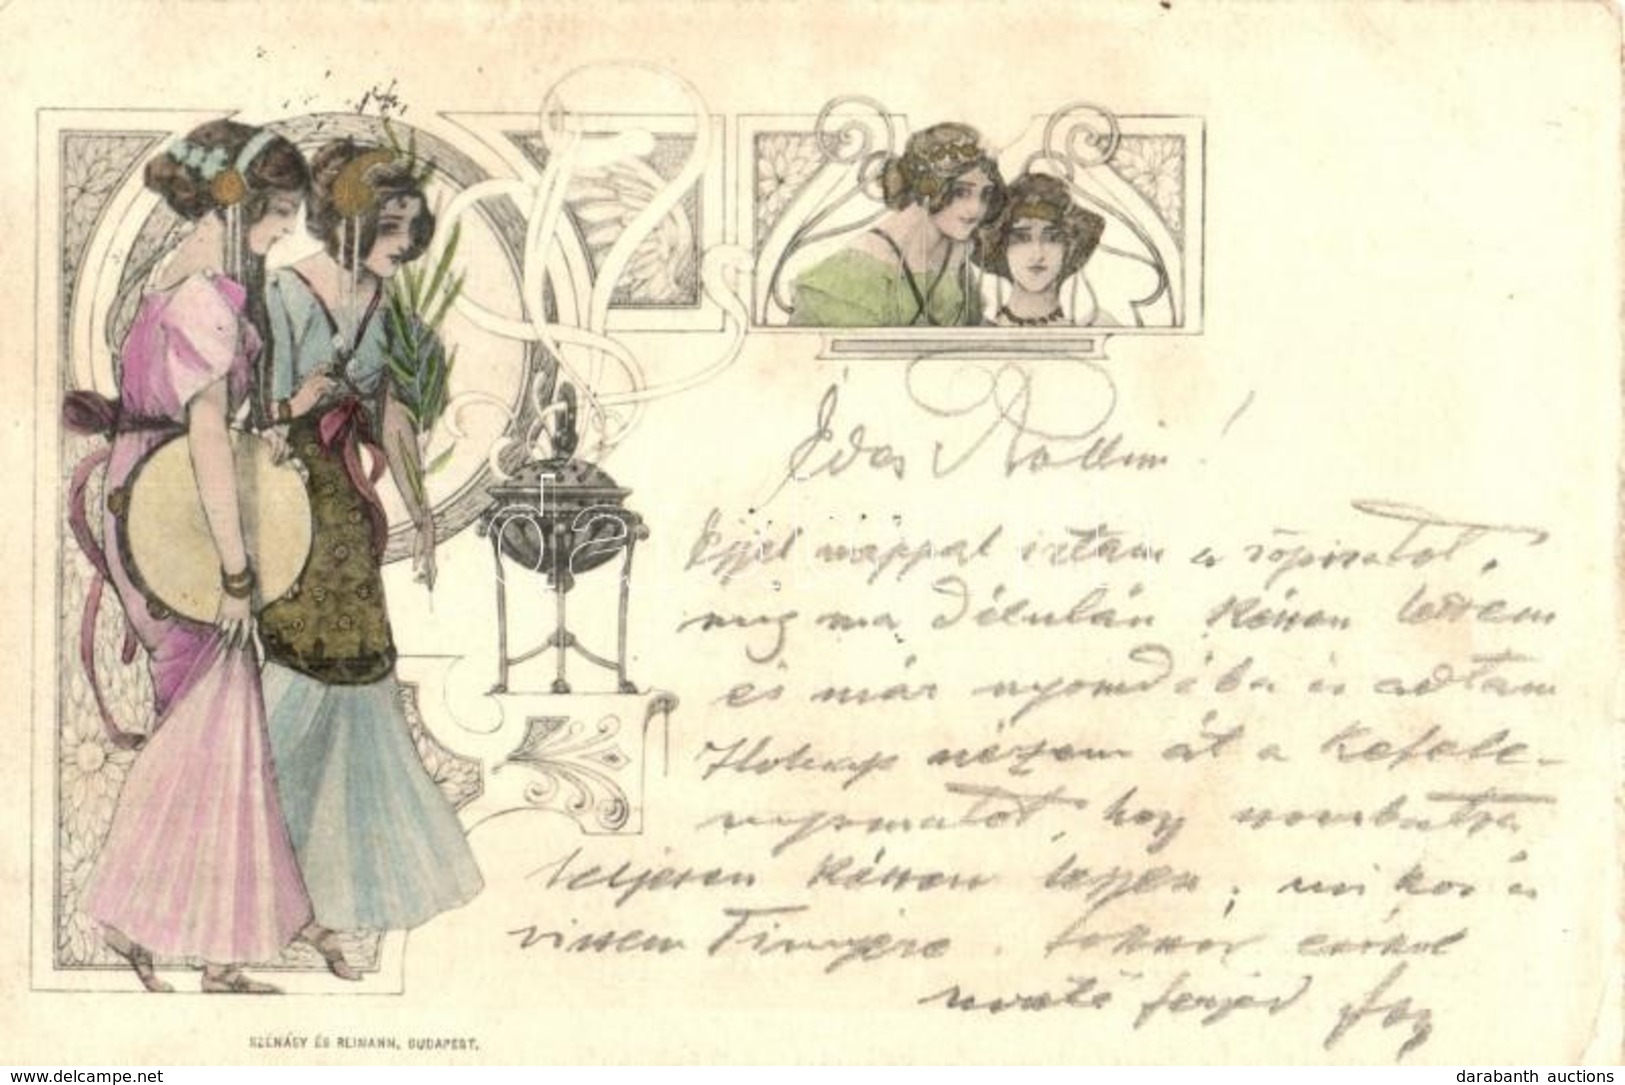 Édes
Éjjel nappal irtam a röpiratot,
mig ma délután készen lettem
és már nyomdába is adtam
Holnap nézem át a kefele-
nyomatot, hogy szombatra
teljesen készen legyen, mikor is
viszem Tinnyére. Sokszor csókol
szerető férjed
SZÉNÁSY ÉS REIMANN, BUDAPEST.
da
www.delcampe.net
darabanth auctions